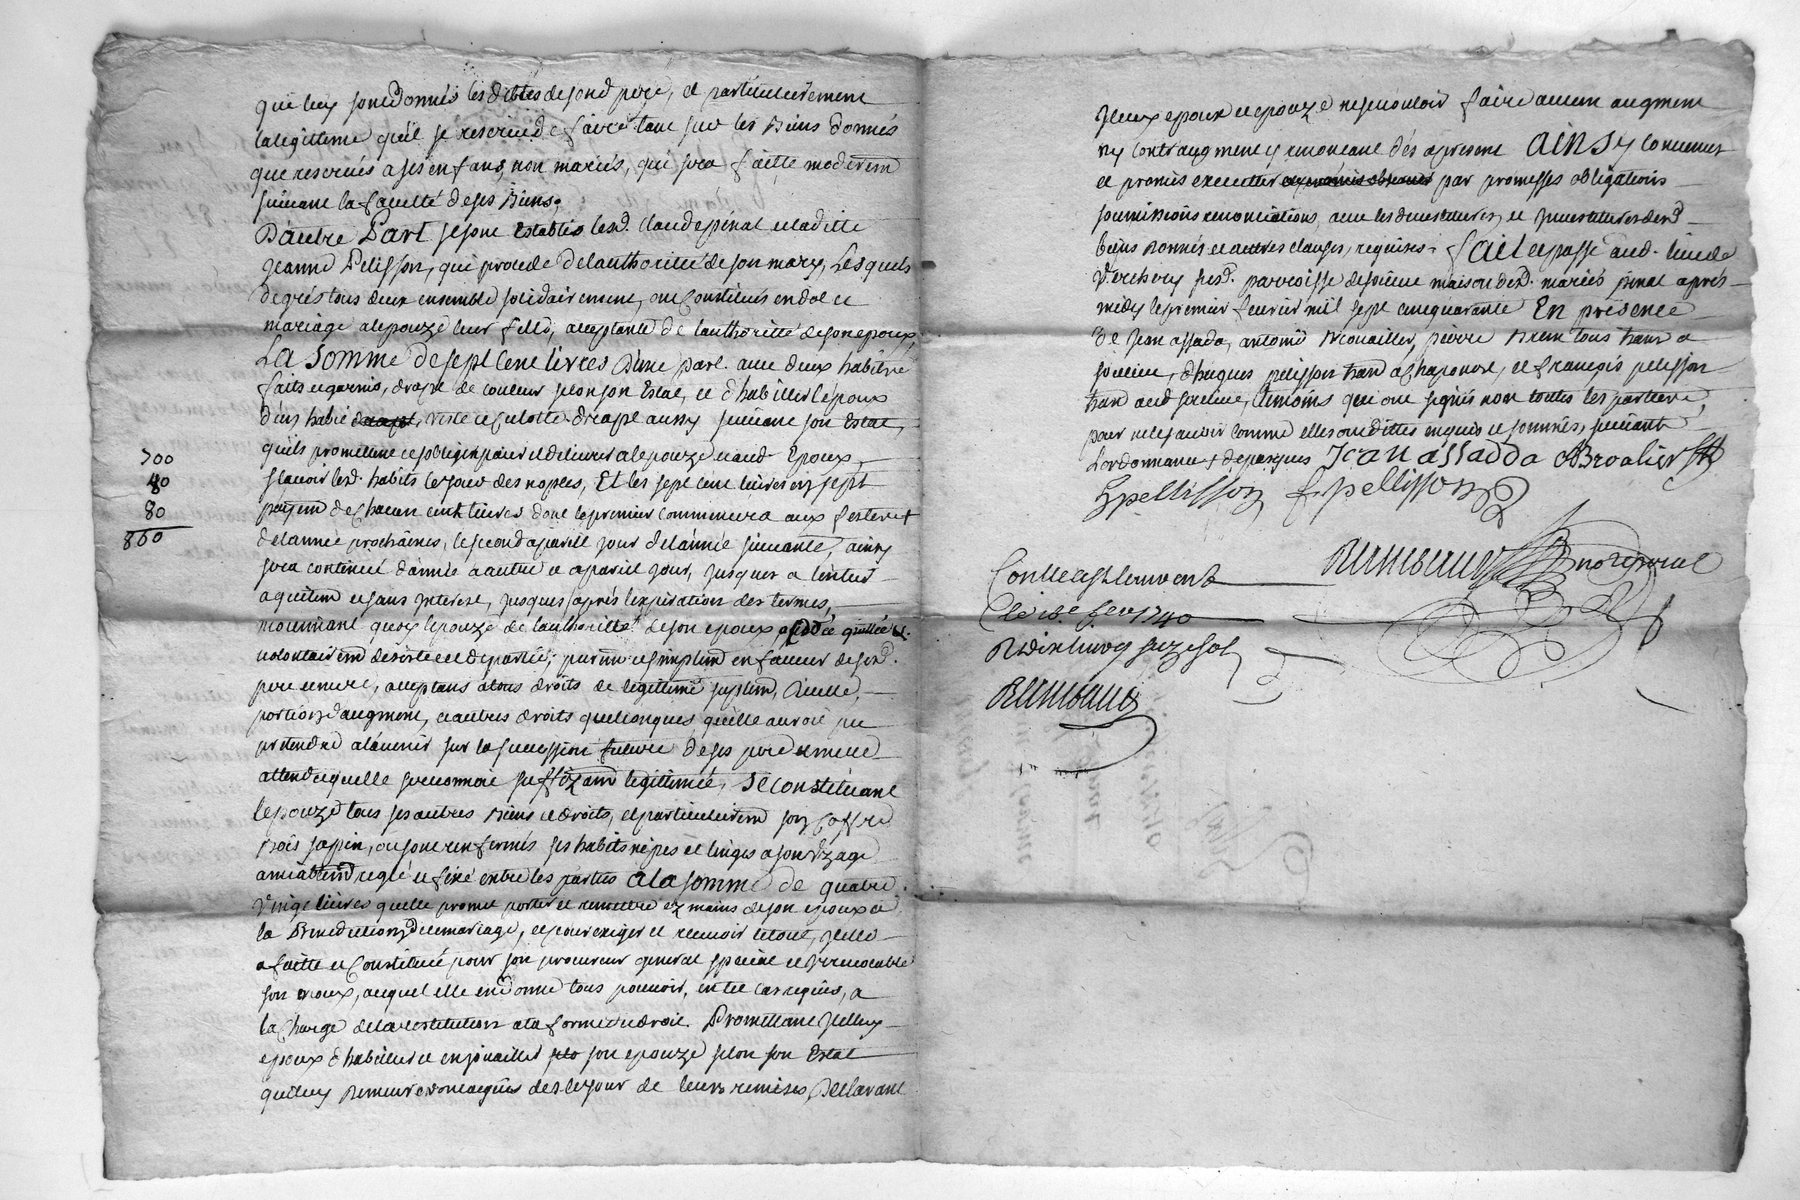 que luy sont donnés les dettes de sond pere, et particulierement
la legittime qu'il se reserve de faire tant sur les Biens donnés
que reservés a ses enfans non mariés, qui sera faitte moderem
suivant la faculté de ses Biens,
D'autre Part se sont Establis lesd. Claude pinat et laditte
Jeanne Pelisson, qui procede de l'authorité de son mary, Lesquels
de gré tous deux ensemble solidairement, ont Constitués en dot et
mariage a lepouze leur fille, acceptante de l'authorité de son epoux,
La somme de sept cent livres d'une part avec deux habits
faits et garnis, drapt de couleur selon son Estat, et d'habiller l'epoux
d'un habit, veste et culotte drapt aussy suivant son Estat,
qu'ils promettent et s'obligent payer et delivrer a lepouze et aud Epoux
700
scavoir lesd. habits le jour des nopces, Et les sept cent livres en sept
80
payem de chacun cent livres dont le premier commencera aux festes
80
860
de l'année prochaines, le second a pareil jour de l'année suivante, ainsy
sera continué d'année a autre et a pareil jour, jusques a l'entier
aquittem et sans interest, jusques apres l'expiration des termes,
moyennant quoy lepouze de l'authorité de son epoux a cédé quitté
volontairem de sorte et departie, purem et simplem en faveur de sesd.
pere et mere, acceptans a tous droits de legittime supplem d'icelle,
portion d'augment, et autres droits quelconques qu'elle auroit pu
pretendre a l'avenir sur la succession future de ses pere et mere
attendu qu'elle se reconnoit suffizam legittimée, se constituant
lepouze tous ses autres Biens et droits, et particulierem son Coffre
Bois sappin, ou sont renfermés ses habits nipes et linges a son uzage
amiablem reglé et fixé entre les parties a la somme de quatre
vingt livres qu'elle promet porter et remettre ez mains de son epoux a
la Benediction du mariage, et pour exiger et recevoir le tout, Jcelle
a faitte et Constitué pour son procureur general special et Jrrevocable
son epoux, auquel elle en donne tous pouvoir, en tel cas requis, a
la charge de la restitution a la forme du droit. Promettant Jcelluy
epoux d'habiller et enjoüailler son epouze selon son Estat
qui luy demeureront acquis des le jour de leurs remises, Declarant
Jceux epoux et epouze ne se vouloir faire aucun augment
ny contraugment y renoncant dés apresent Ainsy Convenu
et promis executter par promesses obligations
soumissions renonciations, avec les devestitures, et Jnvestitures desd
biens donnés et autres clauses, requises. Fait et passé aud. lieu de
Verchery sud. parroisse de soucieu maison desd. mariés pinat aprés
midy le premier fevrier mil sept cent quarante En presence
de Jean assada, antoine Brouailler, pierre Brun tous hans a
soucieu, d'hugues pelisson han a Chaponost, et francois pelisson
han aud soucieu, temoins qui ont signés non touttes les parties
pour ne le scavoir comme elles ont dittes enquis et sommés, suivant
l'ordonnance Jean assadda ABroalier
hpellisson fpellisson
Rambaud no re royal
Conlle a st Laurent
Le 10e fevr 1740
Rambaud